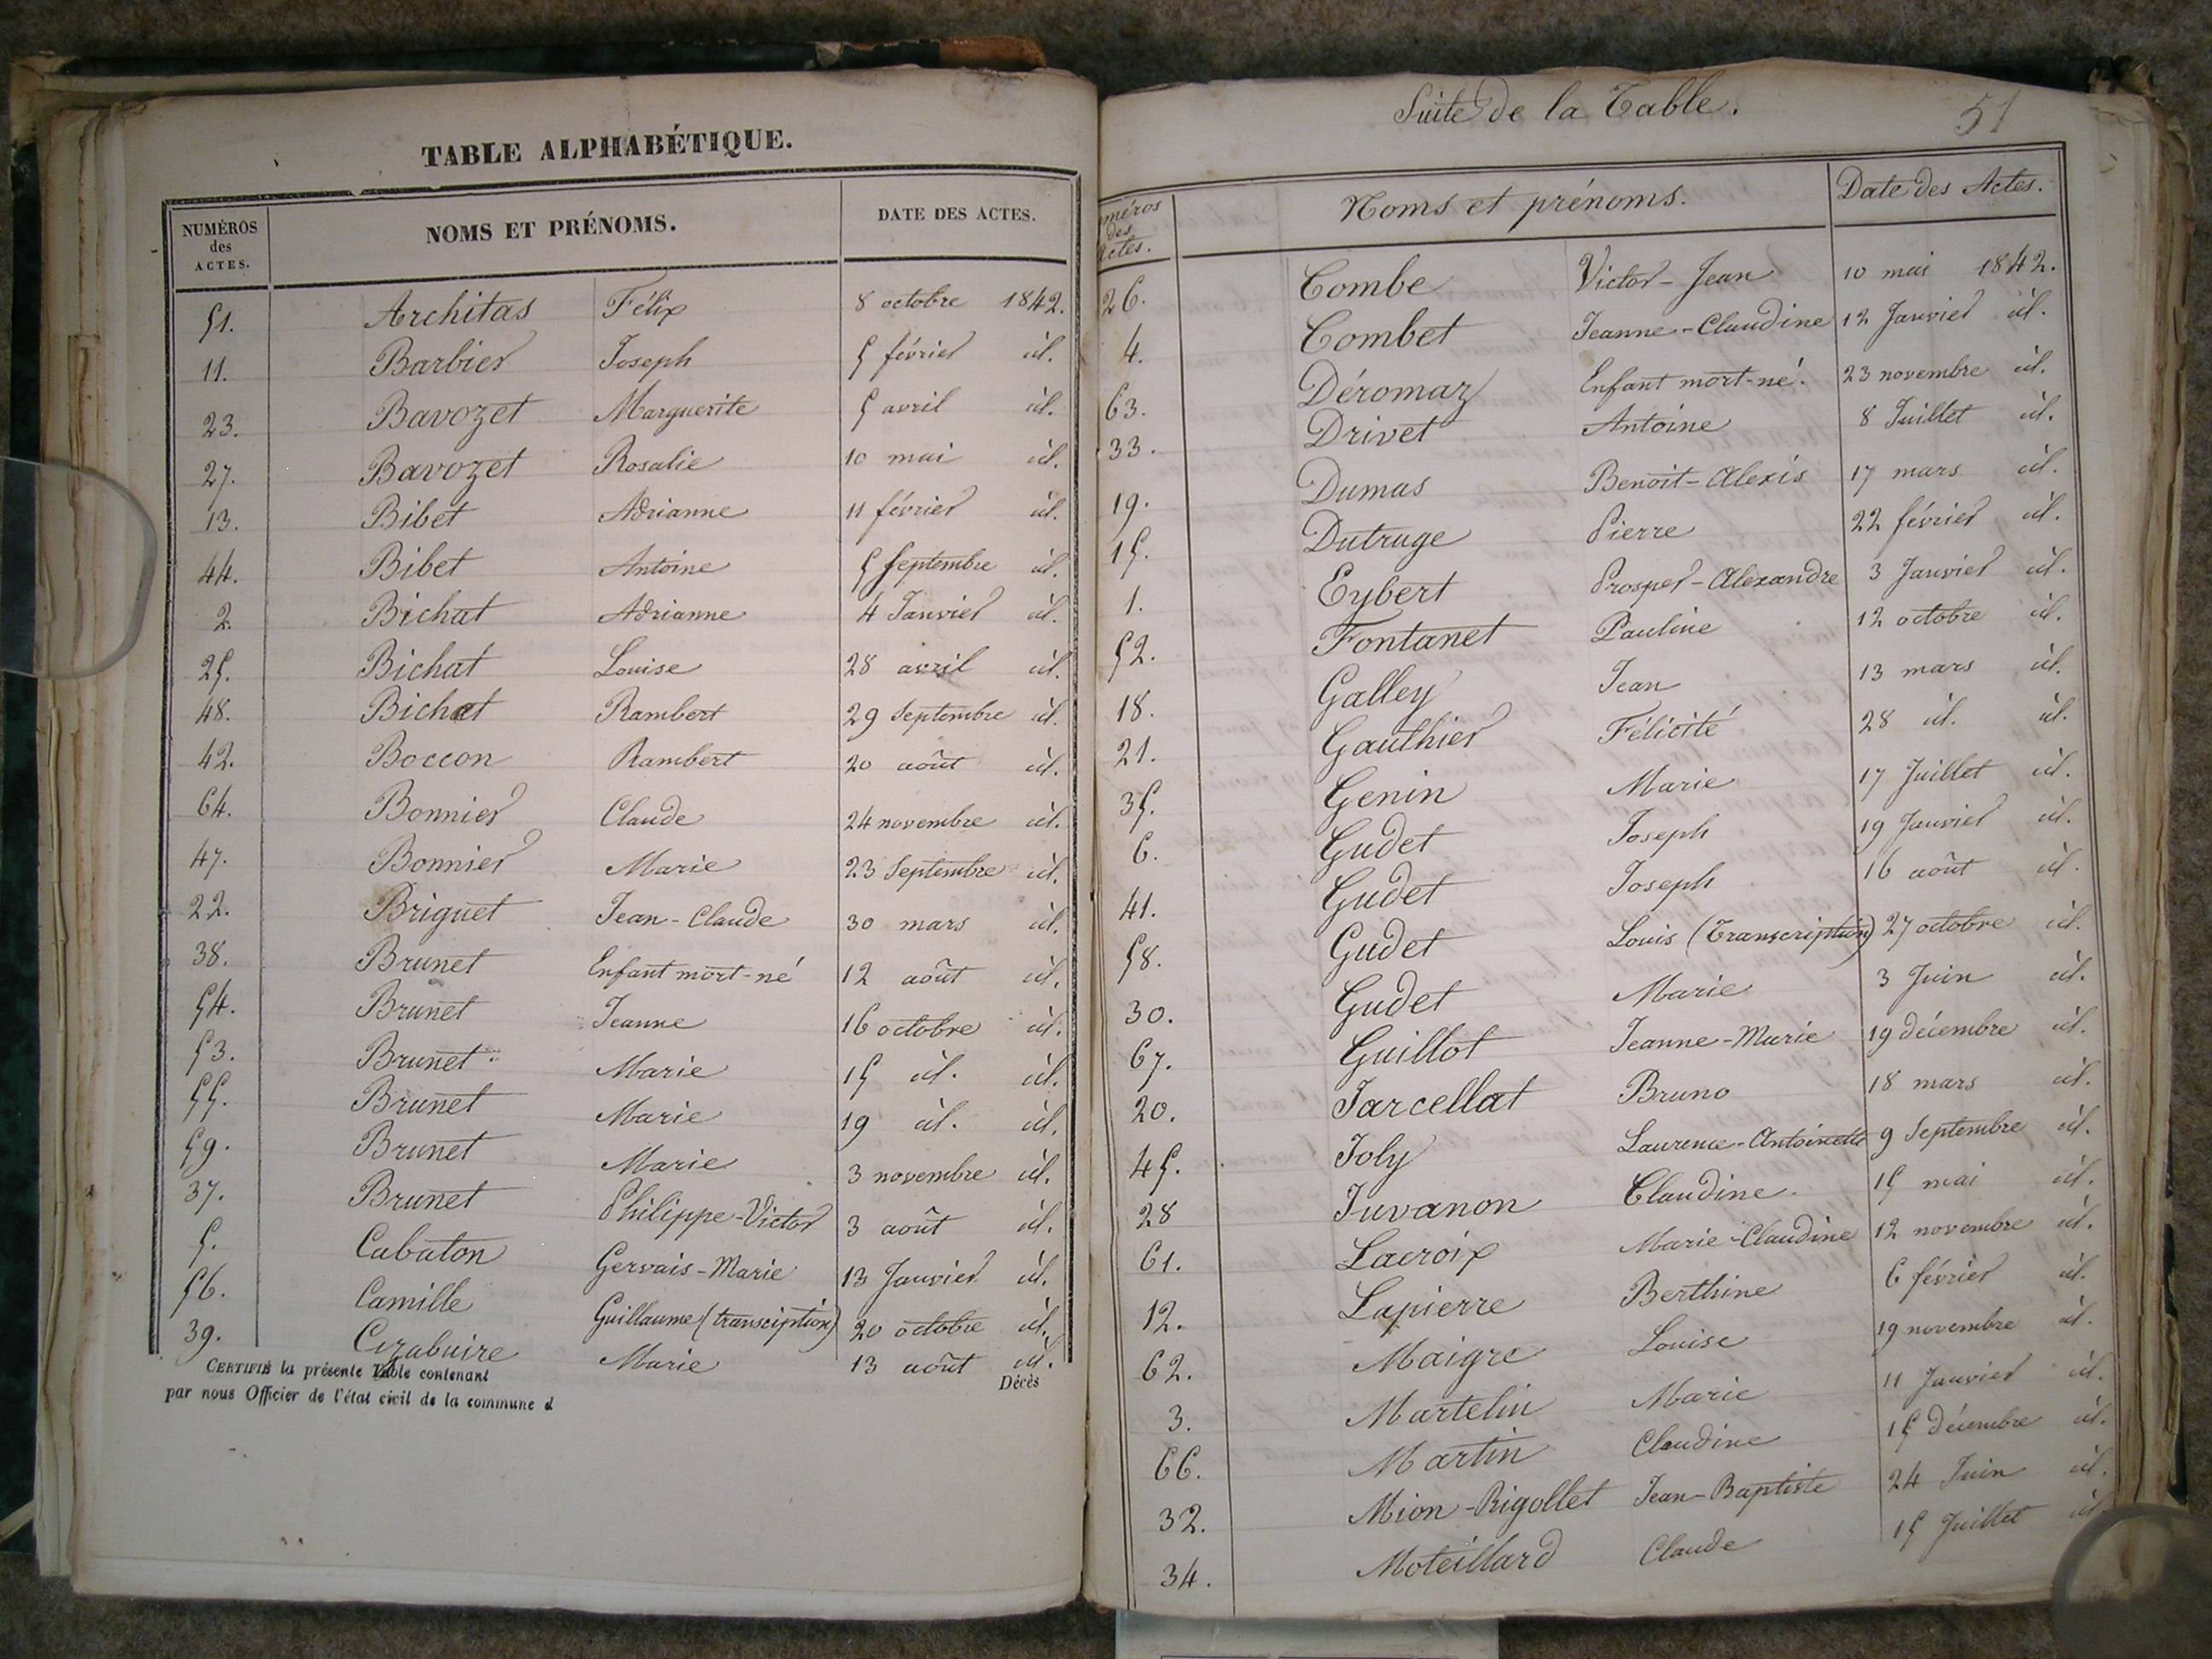 TABLE ALPHABÉTIQUE.
NUMÉROS des ACTES. NOMS ET PRÉNOMS. DATE DES ACTES.
51. Architas Félix 8 octobre 1842.
11. Barbier Joseph 5 février id.
23. Bavozet Marguerite 5 avril id.
27. Bavozet Rosalie 10 mai id.
13. Bibet Adrianne 11 février id.
44. Bibet Antoine 5 septembre id.
2. Bichat Adrianne 4 Janvier id.
25. Bichat Louise 28 avril id.
48. Bichat Rambert 29 Septembre id.
42. Boccon Rambert 20 août id.
64. Bonnier Claude 24 novembre id.
47. Bonnier Marie 23 Septembre id.
22. Briguet Jean-Claude 30 mars id.
38. Brunet Enfant mort-né 12 août id.
54. Brunet Jeanne 16 octobre id.
53. Brunet Marie 15 id. id.
55. Brunet Marie 19 id. id.
59. Brunet Marie 3 novembre id.
37. Brunet Philippe-Victor 3 août id.
5. Cabaton Gervais-Marie 13 Janvier id.
56. Camille Guillaume (transcription) 20 octobre id.
39. Marie 13 août id.
CERTIFIÉ la présente Table contenant Décès
par nous Officier de l'état civil de la commune d
Suite de la Table. 51
Numéros des Actes. Noms et prénoms. Date des Actes.
26. Combe Victor-Jean 10 mai 1842.
4. Combet Jeanne-Claudine 12 Janvier id.
63. Déromaz Enfant mort-né. 23 novembre id.
33. Drivet Antoine 8 Juillet id.
19. Dumas Benoit-Alexis 17 mars id.
15. Dutruge Pierre 22 février id.
1. Eybert Prosper-Alexandre 3 Janvier id.
52. Fontanet Pauline 12 octobre id.
18. Galley Jean 13 mars id.
21. Gauthier Félicité 28 id. id.
35. Genin Marie 17 Juillet id.
6. Gudet Joseph 19 Janvier id.
41. Gudet Joseph 16 août id.
58. Gudet Louis (Transcription) 27 octobre id.
30. Gudet Marie 3 Juin id.
67. Guillot Jeanne-Marie 19 décembre id.
20. Jarcellat Bruno 18 mars id.
45. Joly Laurence-Antoinette 9 Septembre id.
28 Juvanon Claudine. 15 mai id.
61. Lacroix Marie-Claudine 12 novembre id.
12. Lapierre Berthine 6 février id.
62. Maigre Louise 19 novembre id.
3. Martelin Marie 11 Janvier id.
66. Martin Claudine 15 décembre id.
32. Mion-Rigollet Jean-Baptiste 24 Juin id.
34. Moteillard Claude 15 Juillet id